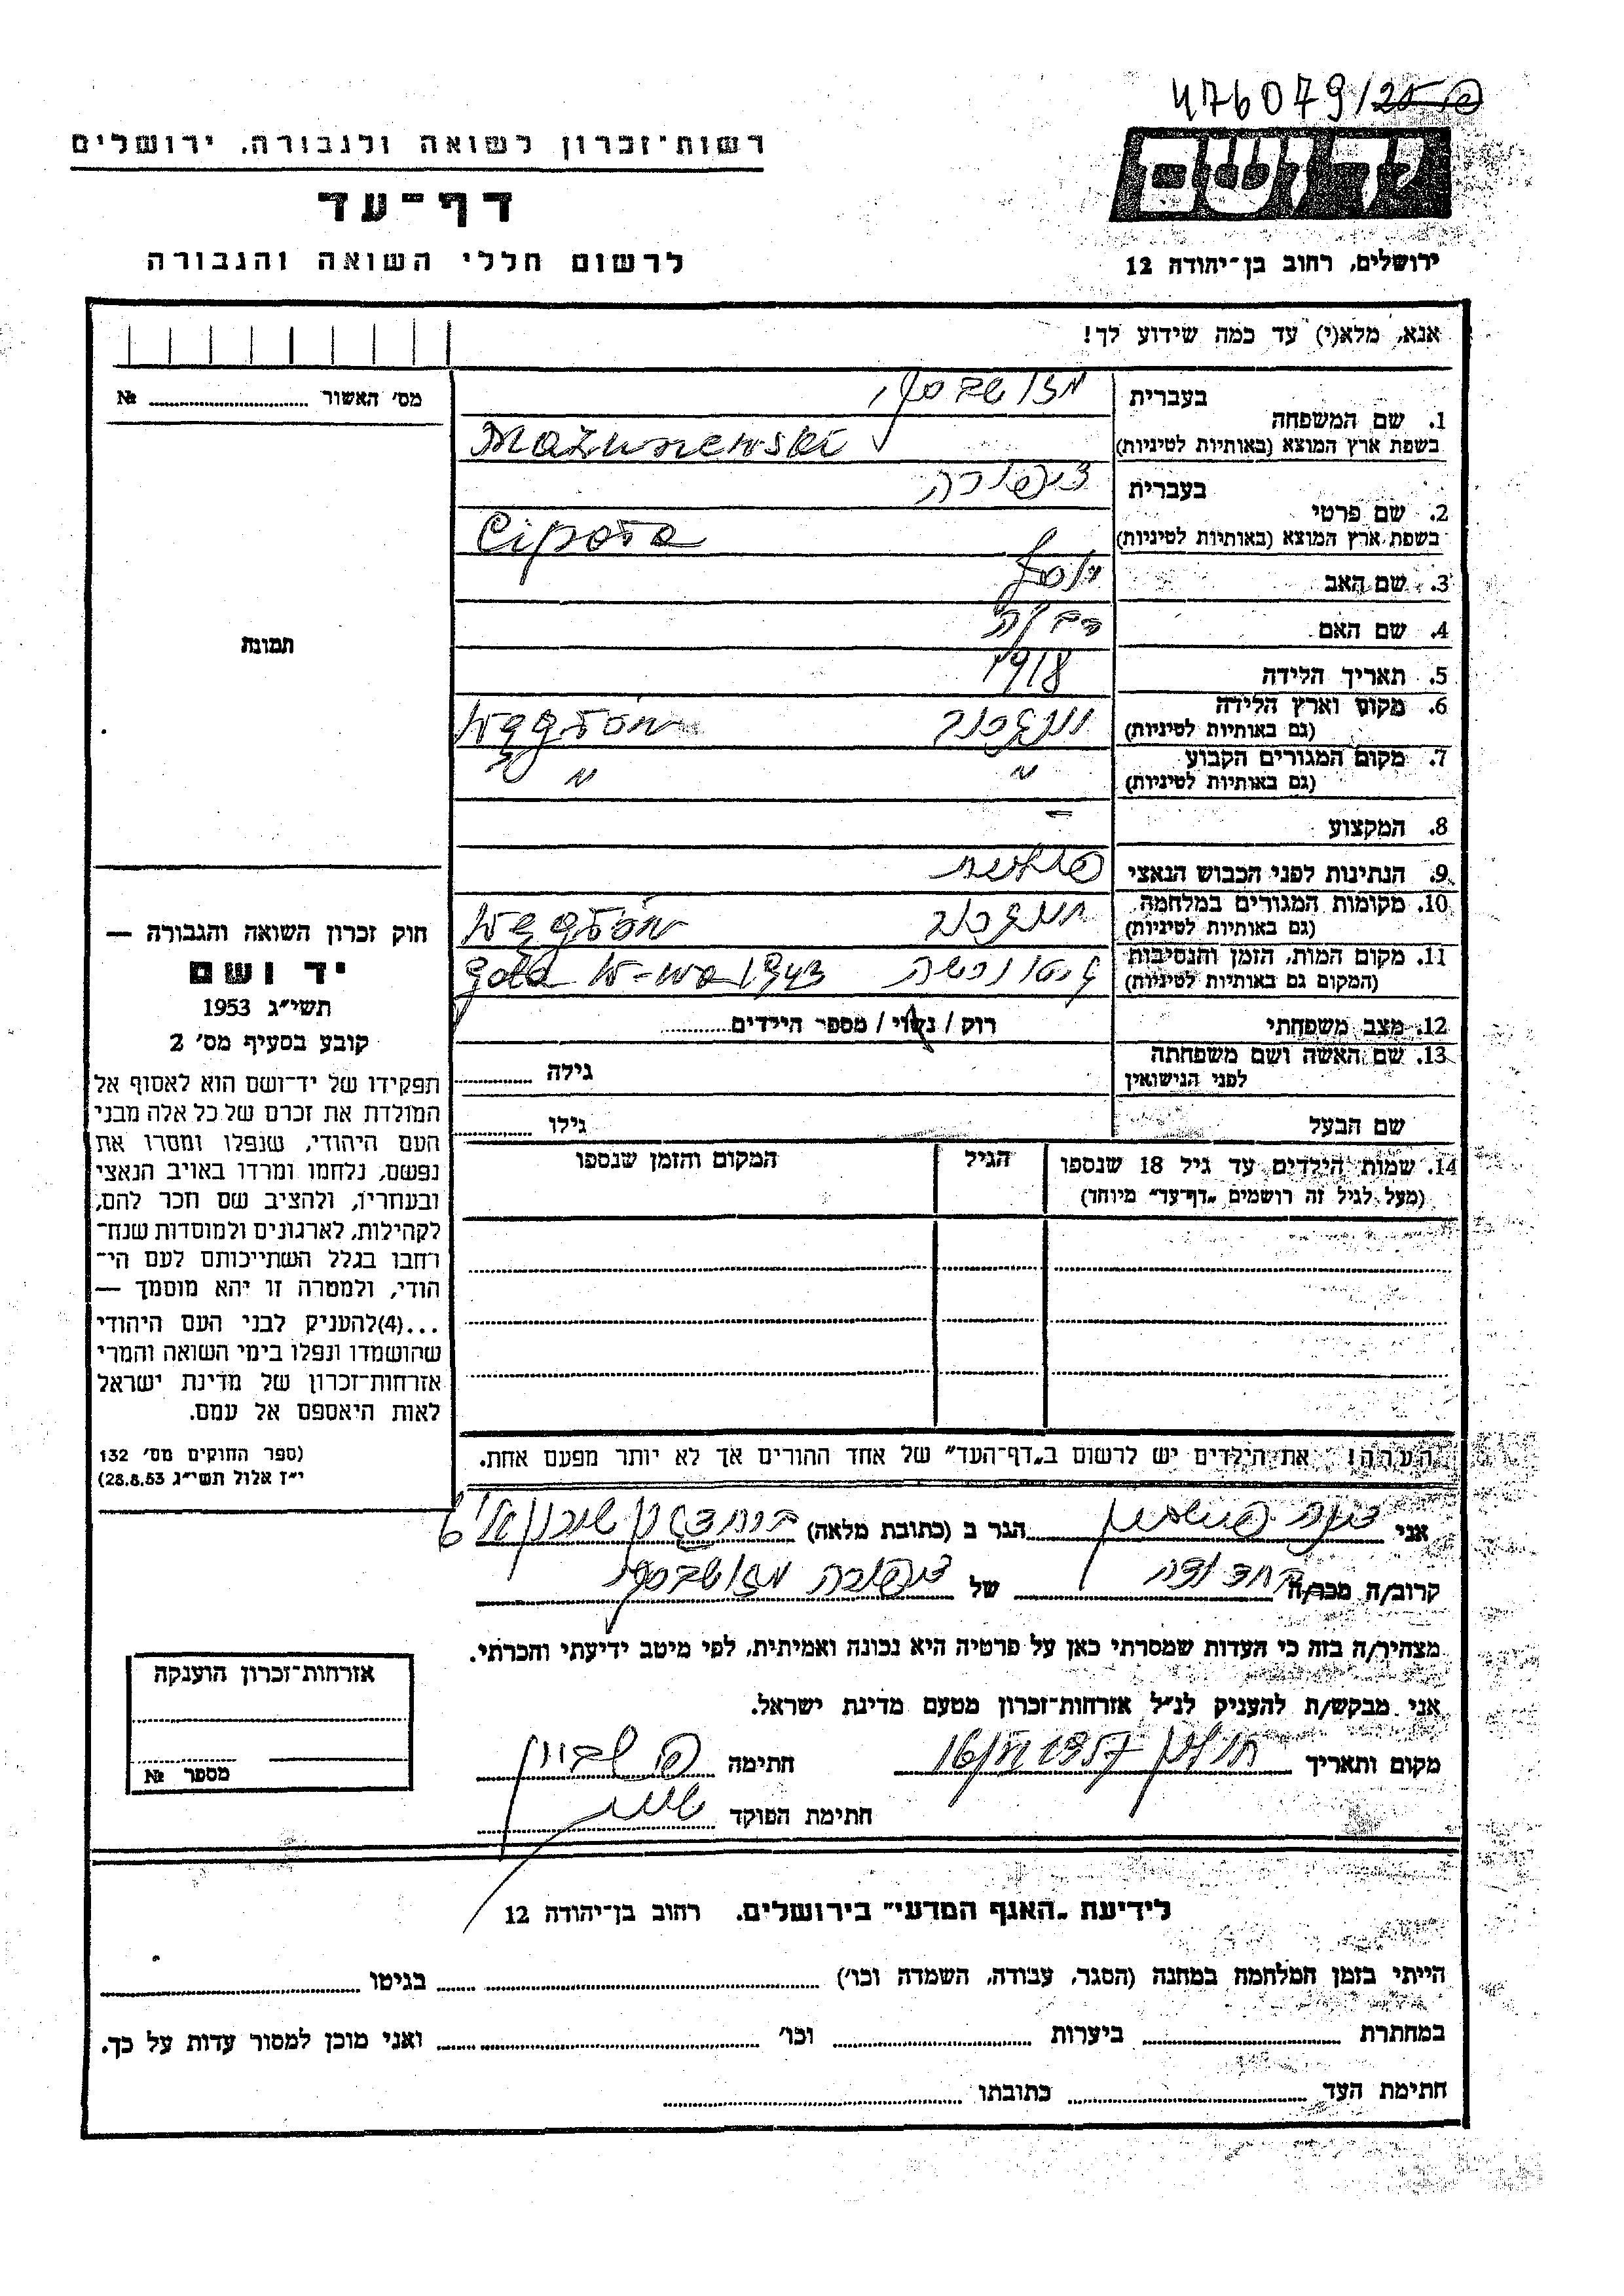 476079/25
רשות־זכרון לשואה ולגבורה, ירושלים
יד ושם
דף־עד
לרשום חללי השואה והגבורה
ירושלים, רחוב בן־יהודה 12
אנא, מלא(י) עד כמה שידוע לך!
מס׳ האשור № 
1. שם המשפחה
בעברית
בשפת ארץ המוצא (באותיות לטיניות)
2. שם פרטי
בעברית ציפורה
בשפת ארץ המוצא (באותיות לטיניות) Cipora
3. שם האב יוסף
4. שם האם
5. תאריך הלידה 1918
6. מקום וארץ הלידה
(גם באותיות לטיניות) Węgrów
7. מקום המגורים הקבוע
(גם באותיות לטיניות) " "
8. המקצוע –
9. הנתינות לפני הכבוש הנאצי
10. מקומות המגורים במלחמה
(גם באותיות לטיניות) Węgrów
11. מקום המות, הזמן והנסיבות
(המקום גם באותיות לטיניות) גיטו ורשה W-wa 1943
12. מצב משפחתי רוק / נשוי / מספר הילדים
13. שם האשה ושם משפחתה
לפני הנישואין
גילה
שם הבעל גילו
14. שמות הילדים עד גיל 18 שנספו הגיל המקום והזמן שנספו
(מעל לגיל זה רושמים „דף־עד״ מיוחד)
הערה! את הילדים יש לרשום ב„דף־העד״ של אחד ההורים אך לא יותר מפעם אחת.
תמונה
חוק זכרון השואה והגבורה —
יד ושם
תשי״ג 1953
קובע בסעיף מס׳ 2
תפקידו של יד־ושם הוא לאסוף אל
המולדת את זכרם של כל אלה מבני
העם היהודי, שנפלו ומסרו את
נפשם, נלחמו ומרדו באויב הנאצי
ובעוזריו, ולהציב שם וזכר להם,
לקהילות, לארגונים ולמוסדות שנח־
רחבו בגלל השתייכותם לעם הי־
הודי, ולמטרה זו יהא מוסמך —
...(4)להעניק לבני העם היהודי
שהושמדו ונפלו בימי השואה והמרי
אזרחות־זכרון של מדינת ישראל
לאות היאספם אל עמם.
(ספר החוקים מס׳ 132
י״ז אלול תשי״ג 28.8.53)
אני הגר ב (כתובת מלאה)
קרוב/ה מכר/ה של ציפורה
מצהיר/ה בזה כי העדות שמסרתי כאן על פרטיה היא נכונה ואמיתית, לפי מיטב ידיעתי והכרתי.
אני מבקש/ת להעניק לנ״ל אזרחות־זכרון מטעם מדינת ישראל.
מקום ותאריך חולון 16/VI 1957 חתימה
חתימת הפוקד
אזרחות־זכרון הוענקה
מספר №
לידיעת „האגף המדעי״ בירושלים, רחוב בן־יהודה 12
הייתי בזמן המלחמה במחנה (הסגר, עבודה, השמדה וכו׳) בגיטו
במחתרת ביערות וכו׳ ואני מוכן למסור עדות על כך.
חתימת העד כתובתו